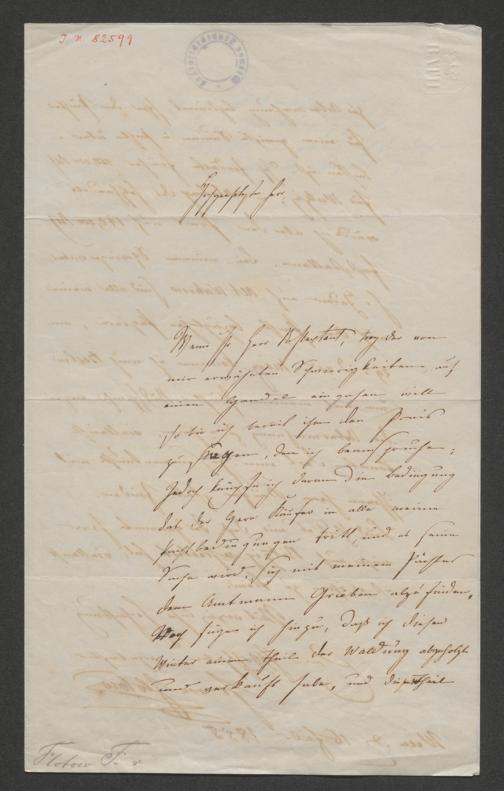 I N 82599
BATH
Hochgeehrter Herr
Wenn Ihr Herr trotz der von
mir erwähnten Schwierigkeiten, auf
einen Handel eingehen will
so bin ich bereit ihm den Preis
zu sagen, den ich beanspruche;
jedoch knüpfe ich daran die Bedingung
daß der Herr Käufer in alle meine
tritt, und es seine
Sache wird, sich mit meinem Pächter
dem Amtmann Grieben abzufinden.
Noch füge ich hinzu, daß ich diesen
Winter einen Theil der Waldung abgeholzt
und verkauft habe, und Theil
Flotow F. v